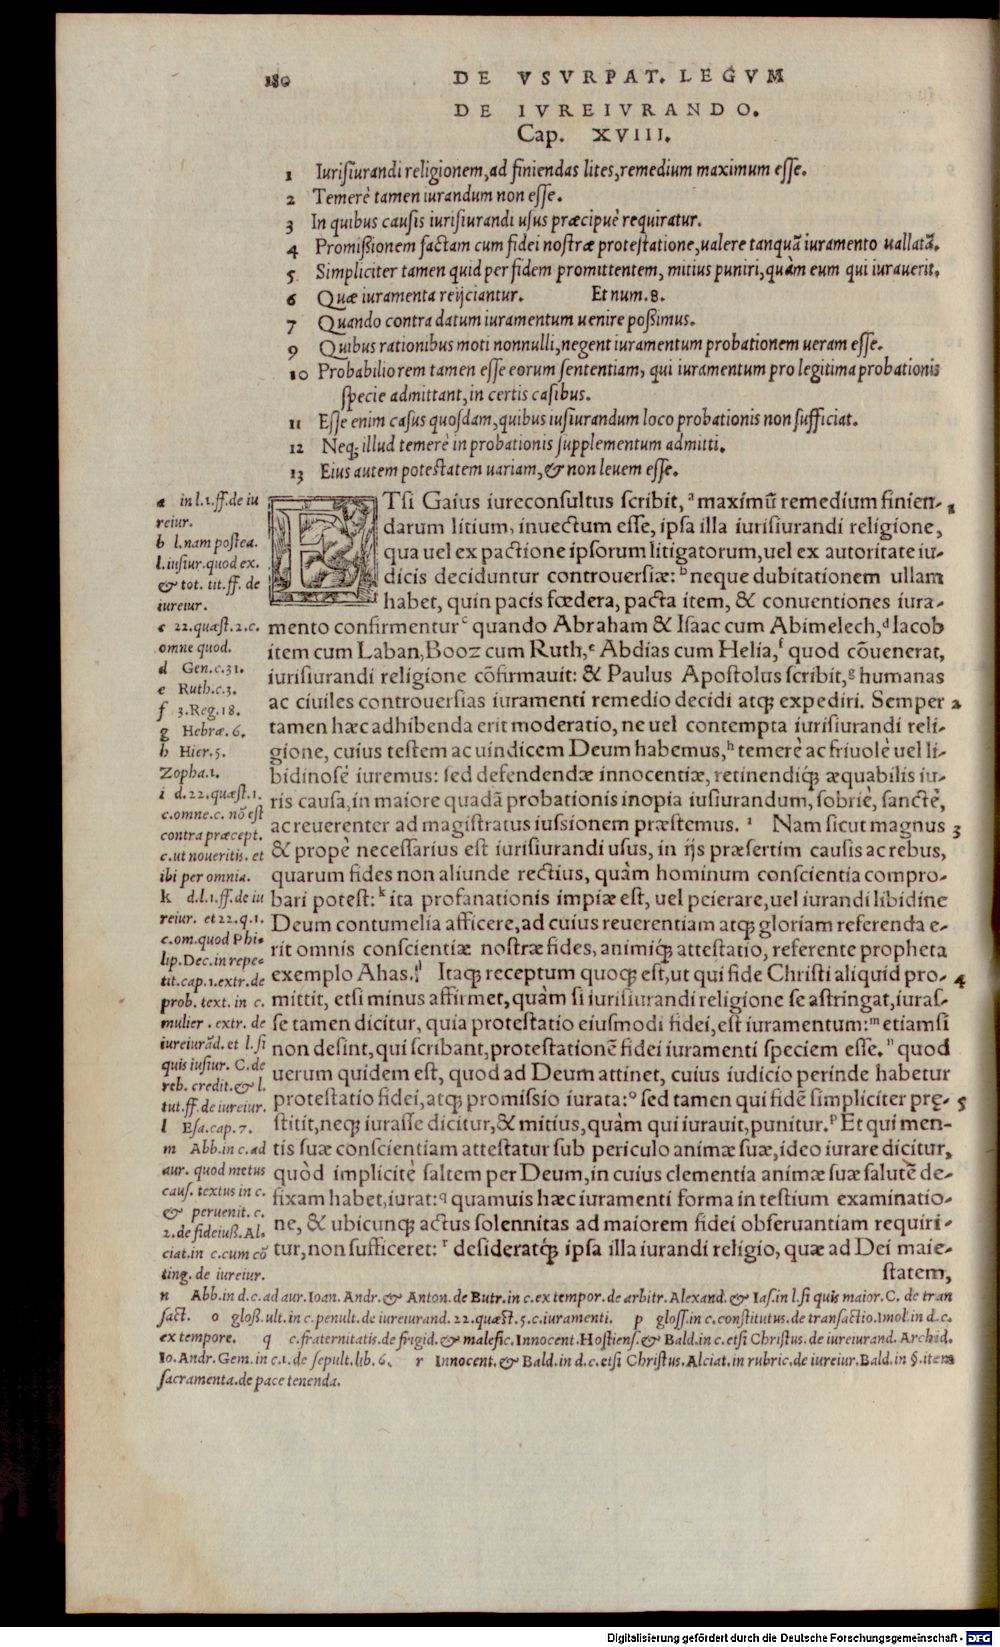 180 DE VSVRPAT. LEGVM
DE IVREIVRANDO.
Cap. XVIII.
1 Iurisiurandi religionem, ad finiendas lites, remedium maximum esse.
2 Temerè tamen iurandum non esse.
3 In quibus causis iurisiurandi usus præcipuè requiratur.
4 Promißionem factam cum fidei nostræ protestatione, ualere tanquã iuramento uallatã.
5 Simpliciter tamen quid per fidem promittentem, mitius puniri, quàm eum qui iurauerit.
6 Quæ iuramenta reijciantur. Et num. 8.
7 Quando contra datum iuramentum uenire poßimus.
9 Quibus rationibus moti nonnulli, negent iuramentum probationem ueram esse.
10 Probabiliorem tamen esse eorum sententiam, qui iuramentum pro legitima probationis
specie admittant, in certis casibus.
11 Esse enim casus quosdam, quibus iusiurandum loco probationis non sufficiat.
12 Neq; illud temerè in probationis supplementum admitti.
13 Eius autem potestatem uariam, & non leuem esse.
ETsi Gaius iureconsultus scribit, ª maximũ remedium finien- 1
darum litium, inuectum esse, ipsa illa iurisiurandi religione,
qua uel ex pactione ipsorum litigatorum, uel ex autoritate iu-
dicis deciduntur controuersiæ: ᵇ neque dubitationem ullam
habet, quin pacis fœdera, pacta item, & conuentiones iura-
mento confirmentur ᶜ quando Abraham & Isaac cum Abimelech, ᵈ Iacob
item cum Laban, Booz cum Ruth, ᵉ Abdias cum Helia, ᶠ quod cõuenerat,
iurisiurandi religione cõfirmauit: & Paulus Apostolus scribit, ᵍ humanas
ac ciuiles controuersias iuramenti remedio decidi atq; expediri. Semper 2
tamen hæc adhibenda erit moderatio, ne uel contempta iurisiurandi reli-
gione, cuius testem ac uindicem Deum habemus, ʰ temerè ac friuolè uel li-
bidinosè iuremus: sed defendendæ innocentiæ, retinendiq́; æquabilis iu-
ris causa, in maiore quadã probationis inopia iusiurandum, sobriè, sanctè,
ac reuerenter ad magistratus iussionem præstemus. ⁱ Nam sicut magnus 3
& propè necessarius est iurisiurandi usus, in ijs præsertim causis ac rebus,
quarum fides non aliunde rectius, quàm hominum conscientia compro-
bari potest: ᵏ ita profanationis impiæ est, uel peierare, uel iurandi libidine
Deum contumelia afficere, ad cuius reuerentiam atq; gloriam referenda e-
rit omnis conscientiæ nostræ fides, animiq́; attestatio, referente propheta
exemplo Ahas. ˡ Itaq; receptum quoq; est, ut qui fide Christi aliquid pro- 4
mittit, etsi minus affirmet, quàm si iurisiurandi religione se astringat, iuras-
se tamen dicitur, quia protestatio eiusmodi fidei, est iuramentum: ᵐ etiamsi
non desint, qui scribant, protestationẽ fidei iuramenti speciem esse. ⁿ quod
uerum quidem est, quod ad Deum attinet, cuius iudicio perinde habetur
protestatio fidei, atq; promissio iurata: º sed tamen qui fidẽ simpliciter prę- 5
stitit, neq; iurasse dicitur, & mitius, quàm qui iurauit, punitur. ᵖ Et qui men-
tis suæ conscientiam attestatur sub periculo animæ suæ, ideo iurare dicitur,
quòd implicitè saltem per Deum, in cuius clementia animæ suæ salutẽ de-
fixam habet, iurat: q quamuis hæc iuramenti forma in testium examinatio-
ne, & ubicunq; actus solennitas ad maiorem fidei obseruantiam requiri-
tur, non sufficeret: ʳ desideratq́; ipsa illa iurandi religio, quæ ad Dei maie-
statem,
a in l. 1. ff. de iu
reiur.
b l. nam postea.
l. iusiur. quod ex.
& tot. tit. ff. de
iureiur.
c 22. quæst. 2. c.
omne quod.
d Gen. c. 31.
e Ruth. c. 3.
f 3. Reg. 18.
g Hebræ. 6.
h Hier. 5.
Zopha. 1.
i d. 22. quæst. 1.
c. omne. c. nõ est
contra præcept.
c. ut noueritis. et
ibi per omnia.
k d. l. 1. ff. de iu
reiur. et 22. q. 1.
c. om. quod Phi-
lip. Dec. in repe-
tit. cap. 1. extr. de
prob. text. in c.
mulier. extr. de
iureiurãd. et l. si
quis iusiur. C. de
reb. credit. & l.
tut. ff. de iureiur.
l Esa. cap. 7.
m Abb. in c. ad
aur. quod metus
caus. textus in c.
& peruenit. c.
2. de fideiuß. Al-
ciat. in c. cum cõ
ting. de iureiur.
n Abb. in d. c. ad aur. Ioan. Andr. & Anton. de Butr. in c. ex tempor. de arbitr. Alexand. & Ias. in l. si quis maior. C. de tran
sact. o gloß. ult. in c. penult. de iureiurand. 22. quæst. 5. c. iuramenti. p gloss. in c. constitutus. de transactio. Imol. in d. c.
ex tempore. q c. fraternitatis. de frigid. & malefic. Innocent. Hostiens. & Bald. in c. etsi Christus. de iureiurand. Archid.
Io. Andr. Gem. in c. 1. de sepult. lib. 6. r Innocent. & Bald. in d. c. etsi Christus. Alciat. in rubric. de iureiur. Bald. in §. item
sacramenta. de pace tenenda.
Digitalisierung gefördert durch die Deutsche Forschungsgemeinschaft - DFG